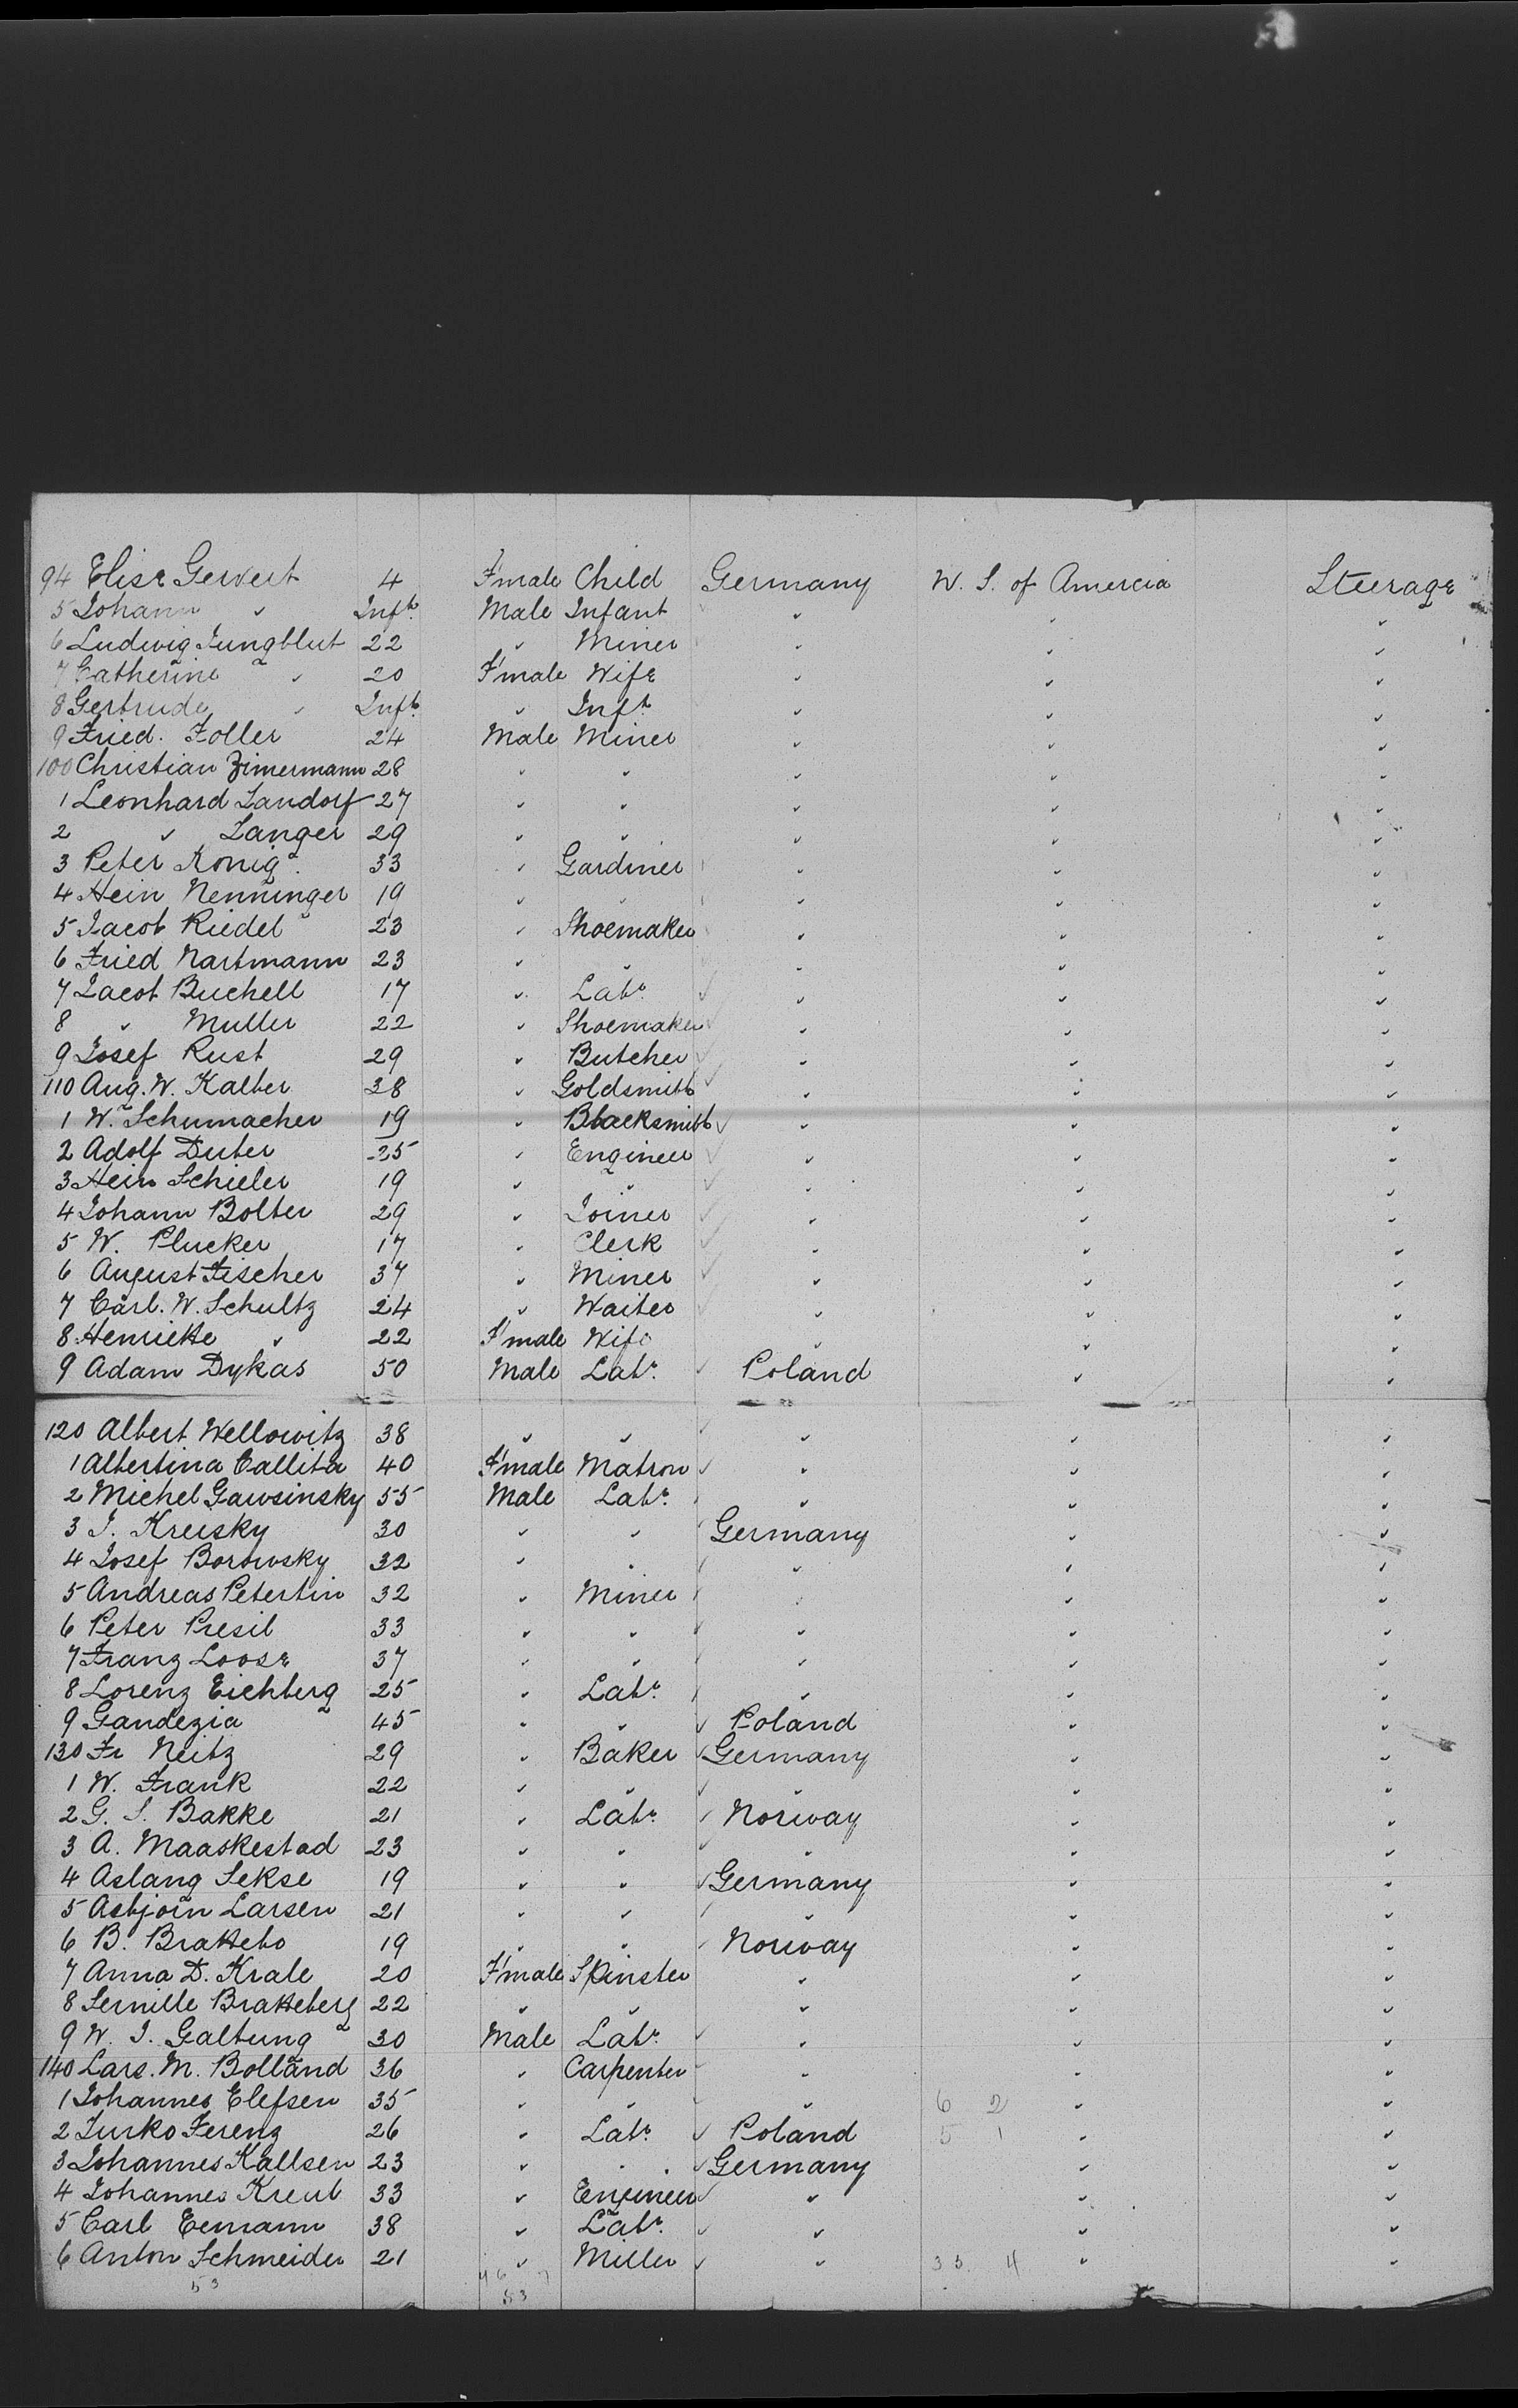 94 Elise Gewert 4 F'male Child Germany U. S. of Amercia Steerage
5 Johann " Inft. Male Infant " " "
6 Ludwig Jungblut 22 " Miner " " "
7 Catherine " 20 F'male Wife " " "
8 Gertrude " Inft. " Inft. " " "
9 Fried. Foller 24 Male Miner " " "
100 Christian Zimermann 28 " " " " "
1 Leonhard Landorf 27 " " " " "
2 " Langer 29 " " " " "
3 Peter Konig. 33 " Gardiner " " "
4 Hein Nenninger 19 " " " " "
5 Jacob Riedel 23 " Shoemaker " " "
6 Fried Hartmann 23 " " " " "
7 Jacob Buchell 17 " Labr. " " "
8 " Muller 22 " Shoemaker " " "
9 Josef Rust 29 " Butcher " " "
110 Aug. W. Kalber 38 " Goldsmith " " "
1 W. Schumacher 19 " Blacksmith " " "
2 Adolf Duter 25 " Engineer " " "
3 Hein Schieler 19 " " " " "
4 Johann Bolter 29 " Joiner " " "
5 W. Plucker 17 " Clerk " " "
6 August Fischer 37 " Miner " " "
7 Carl. W. Schultz 24 " Waiter " " "
8 Henriette " 22 F'male Wife " " "
9 Adam Dykas 50 Male Labr. Poland " "
120 Albert Wellowitz 38 " " " " "
1 Albertina Callita 40 F'male Matron " " "
2 Michel Gawsinsky 55 Male Labr. " " "
3 J. Kreisky 30 " " Germany " "
4 Josef Borowsky 32 " " " " "
5 Andreas Petertin 32 " Miner " " "
6 Peter Presil 33 " " " " "
7 Franz Loose 37 " " " " "
8 Lorenz Eichberg 25 " Labr. " " "
9 Gandezia 45 " " Poland " "
130 Fr Neitz 29 " Baker Germany " "
1 W. Frank 22 " " " " "
2 G. S. Bakke 21 " Labr. Norway " "
3 A. Maaskestad 23 " " " " "
4 Aslang Sekse 19 " " Germany " "
5 Asbjorn Larsen 21 " " " " "
6 B. Brattebo 19 " " Norway " "
7 Anna D. Krale 20 F'male Spinster " " "
8 Sernille Bratteberg 22 " " " " "
9 W. J. Galtung 30 Male Labr. " " "
140 Lars. M. Bolland 36 " Carpenter " " "
1 Johannes Elefsen 35 " " " 6 2 " "
2 Jurko Ferenz 26 " Labr. Poland 5 1 " "
3 Johannes Kallsen 23 " " Germany " "
4 Johannes Kreul 33 " Engineer " " "
5 Carl Eemann 38 " Labr. " " "
6 Anton Schmeider 21 " Miller " 33 4 " "
53 46 7
53